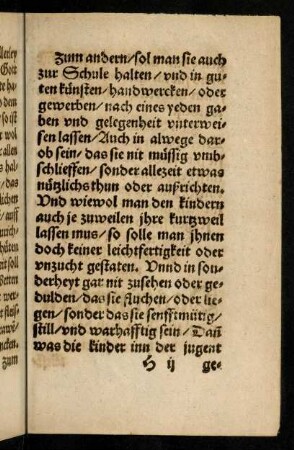 Zum andern/sol man sie auch
zur Schule halten/vnd in gu-
ten künsten/handwercken/oder
gewerben/nach eines yeden ga-
ben vnd gelegenheit vnterwei-
sen lassen/Auch in alwege dar-
ob sein/das sie nit müssig vmb-
schlieffen/sonder allezeit etwas
nützlichs thun oder außrichten.
Vnd wiewol man den kindern
auch je zuweilen jhre kurtzweil
lassen mus/so solle man jhnen
doch keiner leichtfertigkeit oder
vnzucht gestaten. Vnnd in son-
derheyt gar nit zusehen oder ge-
dulden/das sie fluchen/oder lie-
gen/sonder das sie senfftmütig/
still/vnd warhafftig sein/Dañ
was die kinder inn der jugent
H ij ge-